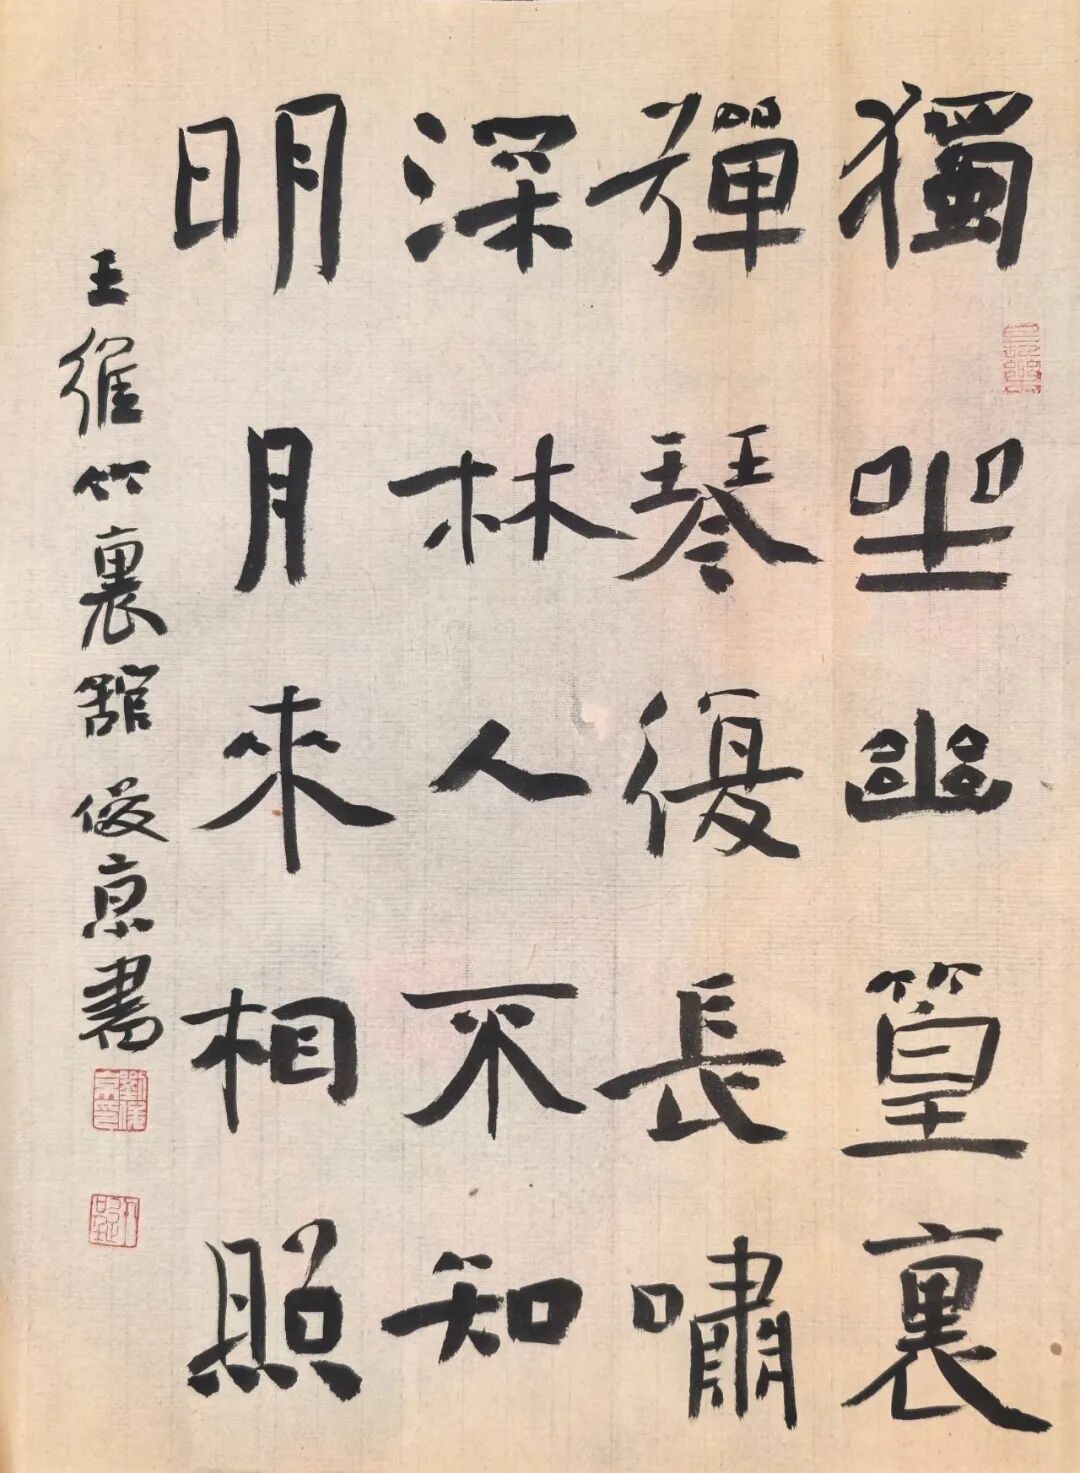 獨坐幽篁裏
彈琴復長嘯
深林人不知
明月來相照
王維竹裏館 俊京書